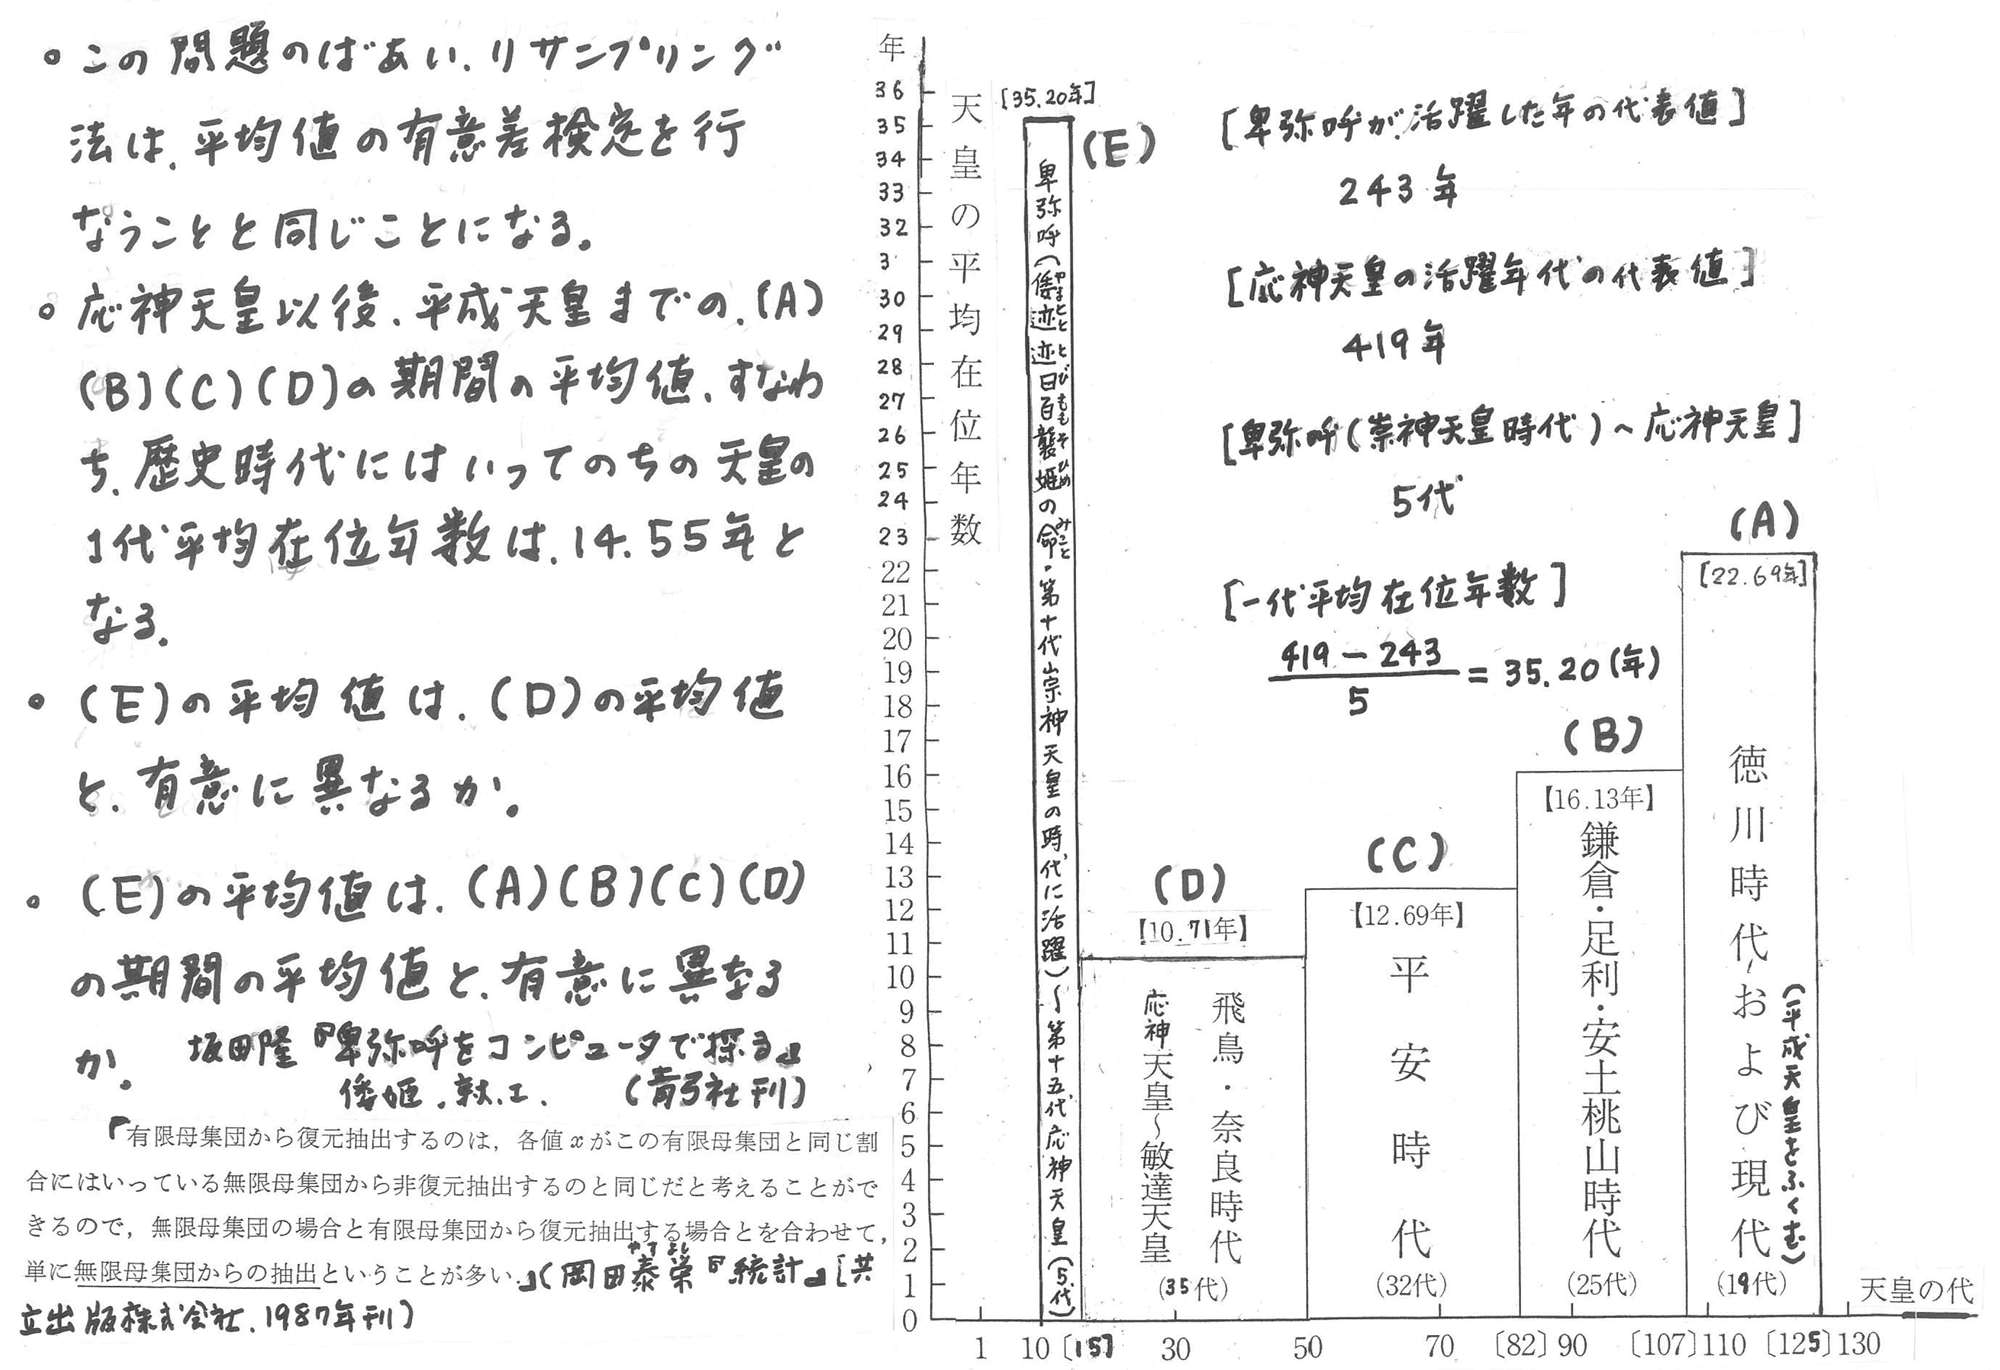 。この問題のばあい、リサンプリング
法は、平均値の有意差検定を行
なうことと同じことになる。
。応神天皇以後、平成天皇までの、(A)
(B)(C)(D)の期間の平均値、すなわ
ち、歴史時代にはいってのちの天皇の
1代平均在位年数は、14.55年と
なる。
。(E)の平均値は、(D)の平均値
と、有意に異なるか。
。(E)の平均値は、(A)(B)(C)(D)
の期間の平均値と、有意に異なる
か。
坂田隆『卑弥呼をコンピュータで探る』
(青弓社刊)
「有限母集団から復元抽出するのは，各値xがこの有限母集団と同じ割
合にはいっている無限母集団から非復元抽出するのと同じだと考えることがで
きるので，無限母集団の場合と有限母集団から復元抽出する場合とを合わせて，
単に無限母集団からの抽出ということが多い.」(岡田泰栄『統計』[共
やすよし
立出版株式会社、1987年刊)
年
36
35
34
33
32
31
30
29
28
27
26
25
24
23
22
21
20
19
18
17
16
15
14
13
12
11
10
9
8
7
6
5
4
3
2
1
0
天皇の平均在位年数
[35.20年]
(E)
卑弥呼(倭迹迹日百襲姫の命・第十代崇神天皇の時代に活躍)～第十五代応神天皇(5代)
やまとととびももそひめ
みこと
[卑弥呼が活躍した年の代表値]
243年
[応神天皇の活躍年代の代表値]
419年
[卑弥呼(崇神天皇時代)～応神天皇]
5代
[一代平均在位年数]
419－243
5
＝35.20(年)
(D)
【10.71年】
飛鳥・奈良時代
応神天皇～敏達天皇
(35代)
(C)
【12.69年】
平安時代
(32代)
(B)
【16.13年】
鎌倉・足利・安土桃山時代
(25代)
(A)
[22.69年]
徳川時代および現代
(平成天皇をふくむ)
(19代)
天皇の代
1 10 〔15〕 30 50 70 〔82〕90 〔107〕110 〔125〕130